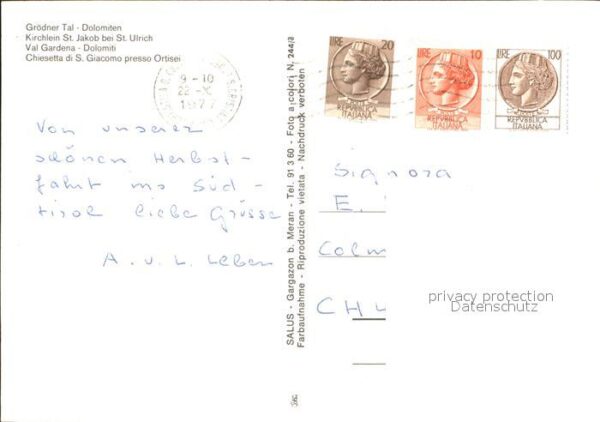 Grödner Tal - Dolomiten
Kirchlein St. Jakob bei St. Ulrich
Val Gardena - Dolomiti
Chiesetta di S. Giacomo presso Ortisei
9-10
22-X
1977
Von unserer
schönen Herbst-
fahrt ins Süd-
tirol liebe Grüsse
A. u. L. Leber
SALUS - Gargazon b. Meran - Tel. 91 3 60 - Foto a colori N. 244/a
Farbaufnahme - Riproduzione vietata - Nachdruck verboten
LIRE 20
REPVBBLICA
ITALIANA
LIRE 10
REPVBBLICA
ITALIANA
LIRE 100
REPVBBLICA
ITALIANA
Signora
E.
Colm
CH
privacy protection
Datenschutz